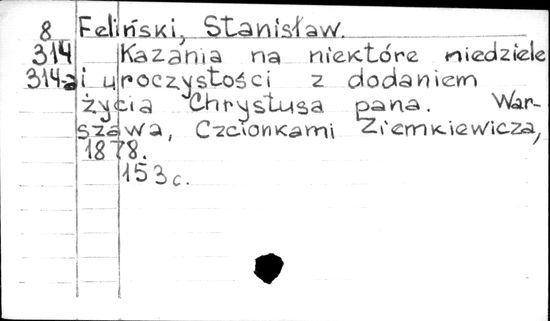 8 Feliński, Stanisław.
314 Kazania na niektóre niedziele
314-a i uroczystości z dodaniem
życia Chrystusa pana. War-
szawa, Czcionkami Ziemkiewicza,
1878.
153 c.